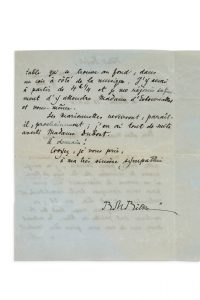 table qui se trouve au fond, dans
un coin à côté de la musique. J'y serai
à partir de 4h ¼ et je me réjouis
ment d'y attendre Madame d'
et vous-même.
Les marionnettes revivront, paraît-
il, prochainement ; j'en ai tout de suite
averti Madame Dubost.
À demain !
Croyez, je vous prie,
à ma très sincère sympathie